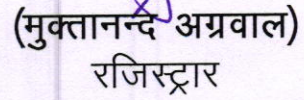 (मुक्तानन्द अग्रवाल)
रजिस्ट्रार